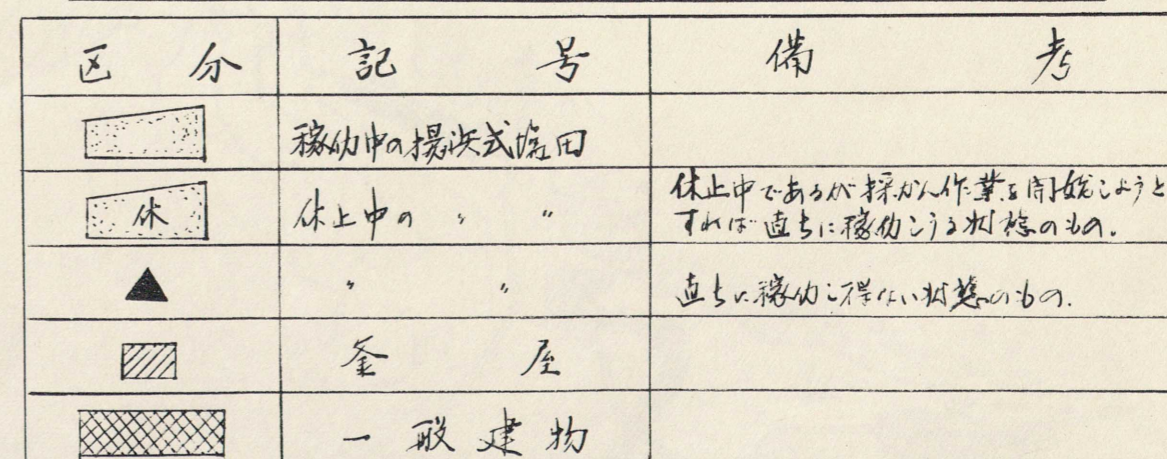 区分 記号 備考
稼仂中の揚浜式塩田
休 休止中の 〃 〃 休止中であるが採かん作業を開始しようと
すれば直ちに稼仂しうる状態のもの.
〃 〃 直ちに稼仂し得ない状態のもの.
釜屋
一般建物